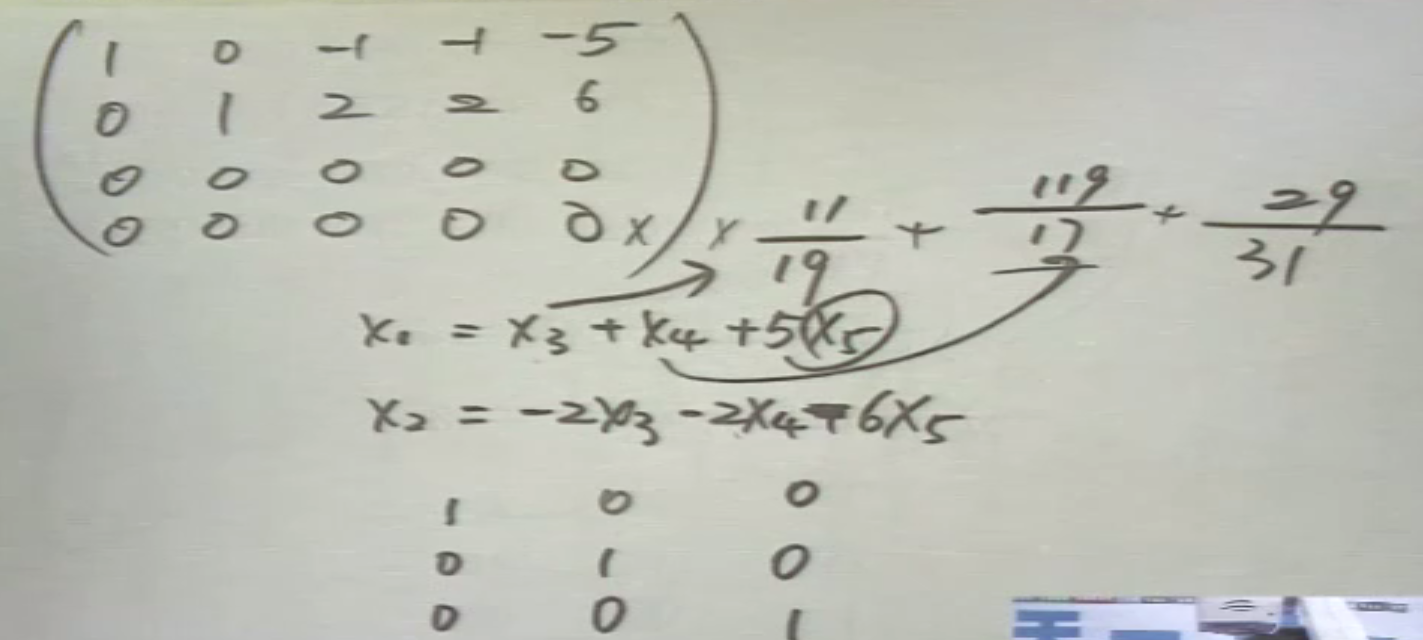 1 0 -1 -1 -5
0 1 2 2 6
0 0 0 0 0
0 0 0 0 0 x x 11/19 + 119/17 + 29/31
x₁ = x₃ + x₄ + 5x₅
x₂ = -2x₃ - 2x₄ - 6x₅
1 0 0
0 1 0
0 0 1